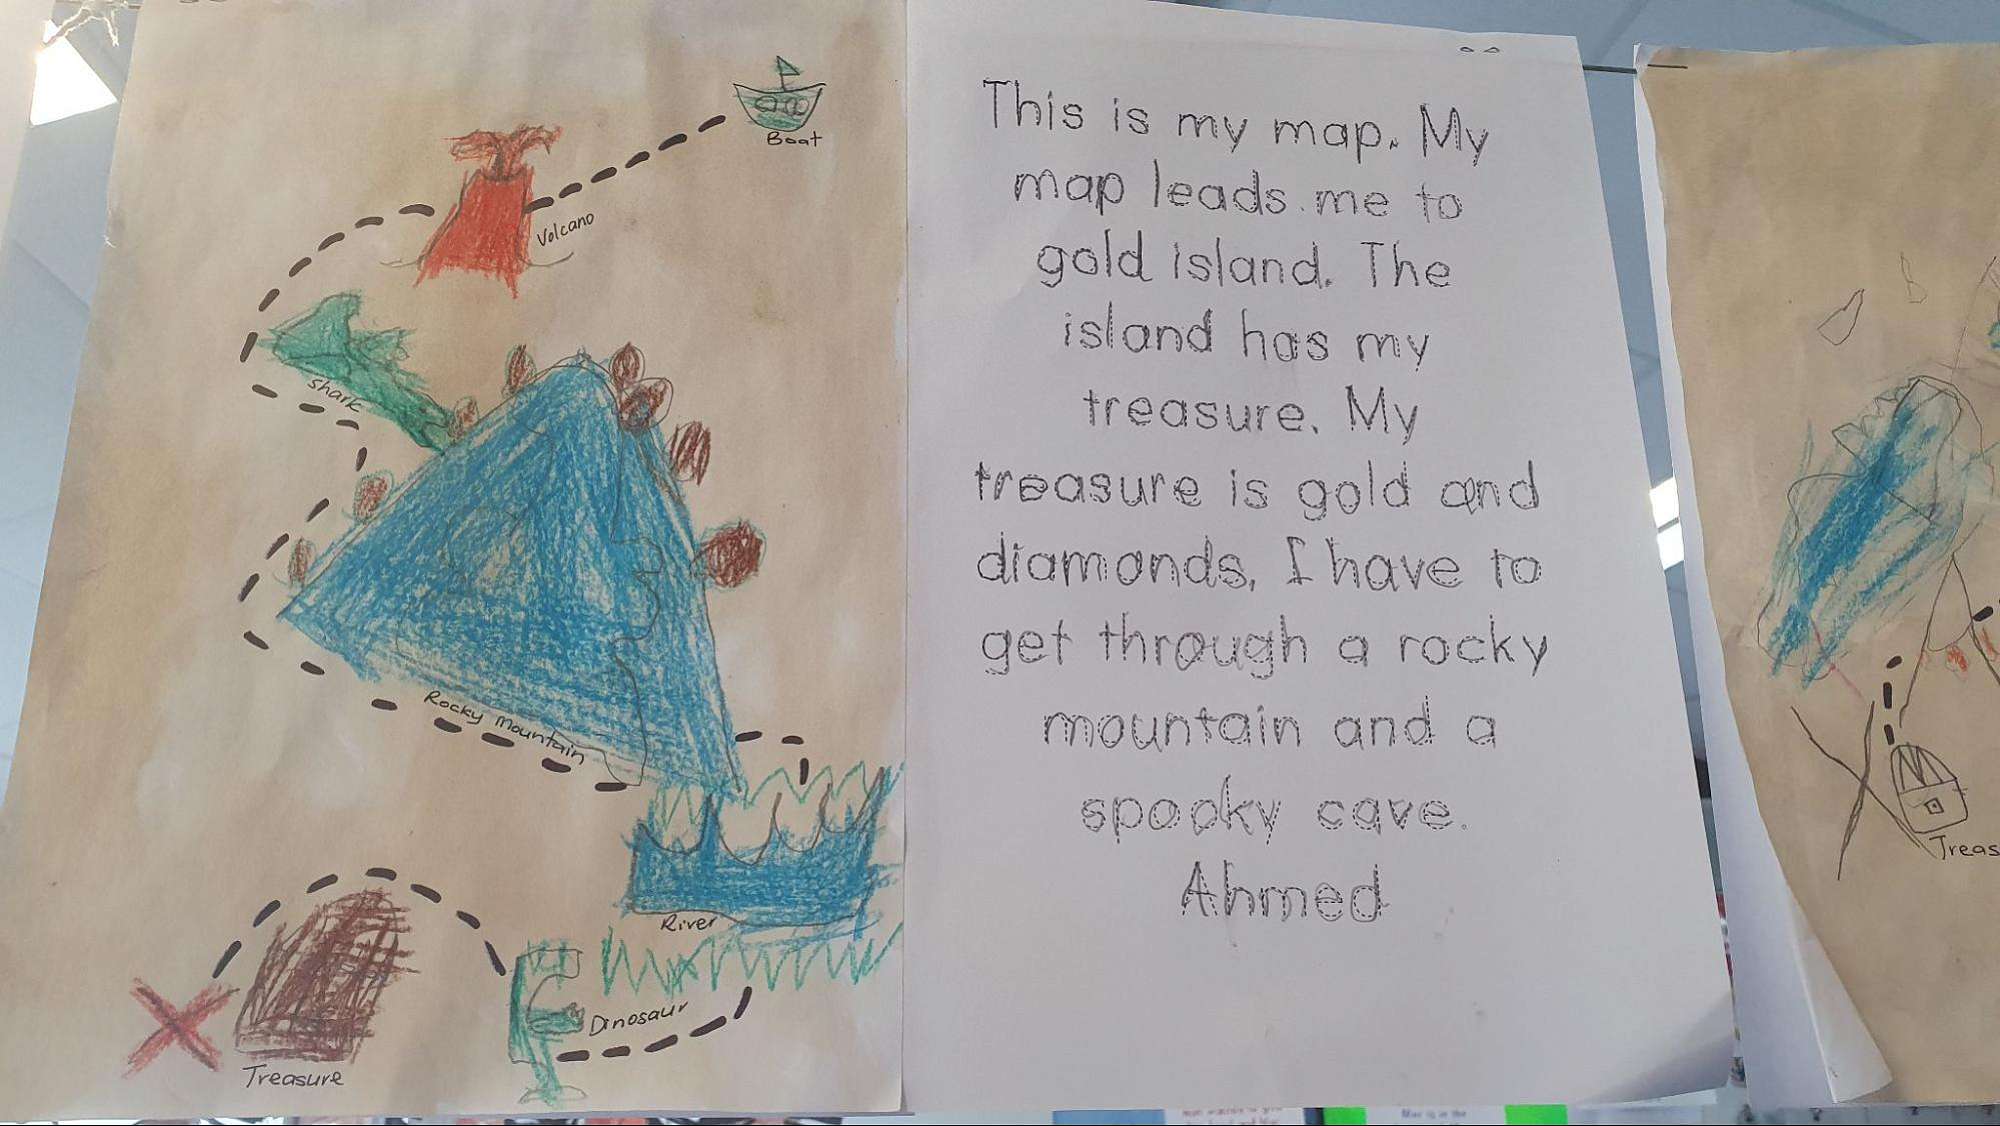 Boat
Volcano
Shark
Rocky Mountain
River
Dinosaur
Treasure
This is my map. My
map leads me to
gold island. The
island has my
treasure. My
treasure is gold and
diamonds. I have to
get through a rocky
mountain and a
spooky cave.
Ahmed